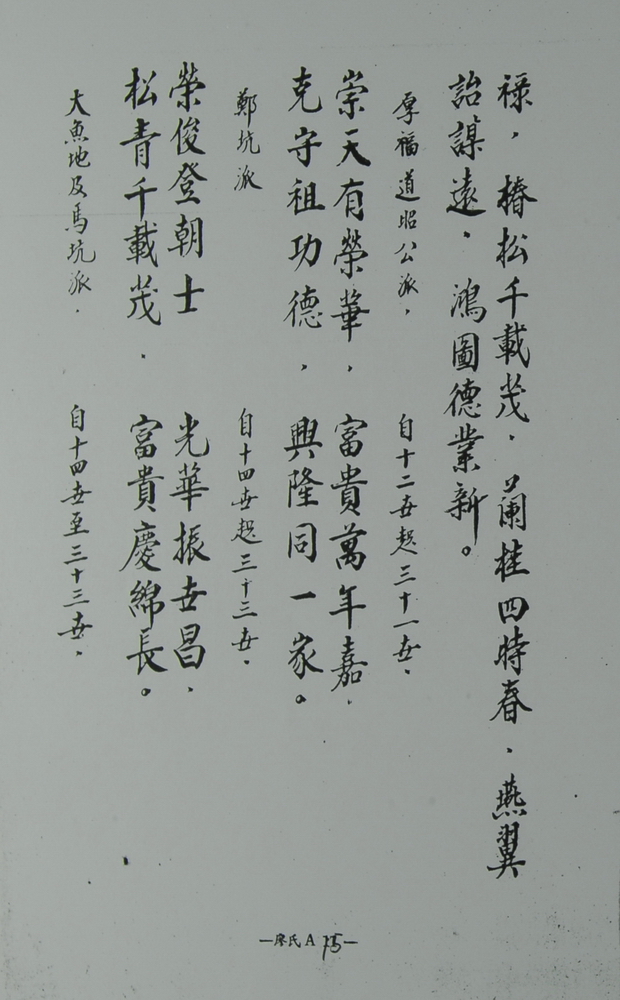 祿，椿松千載茂．蘭桂四時春．燕翼
詒謀遠．鴻圖德業新。
厚福道昭公派，自十二世起三十一世．
崇天有榮華，富貴萬年嘉．
克守祖功德，興隆同一家。
鄭坑派 自十四世起三十三世．
榮俊登朝士 光華振世昌．
松青千載茂．富貴慶綿長。
大魚地及馬坑派．自十四世至三十三世．
—廖氏A15—